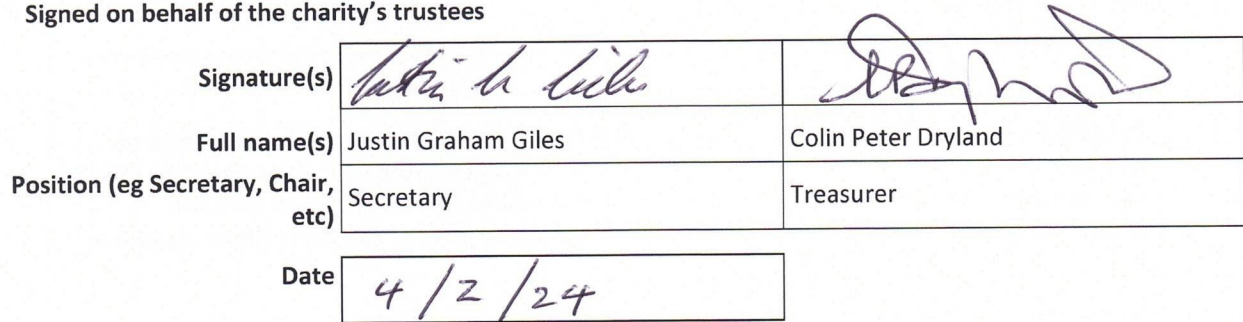 Signed on behalf of the charity's trustees
Signature(s)
Full name(s) Justin Graham Giles Colin Peter Dryland
Position (eg Secretary, Chair, etc) Secretary Treasurer
Date 4/2/24